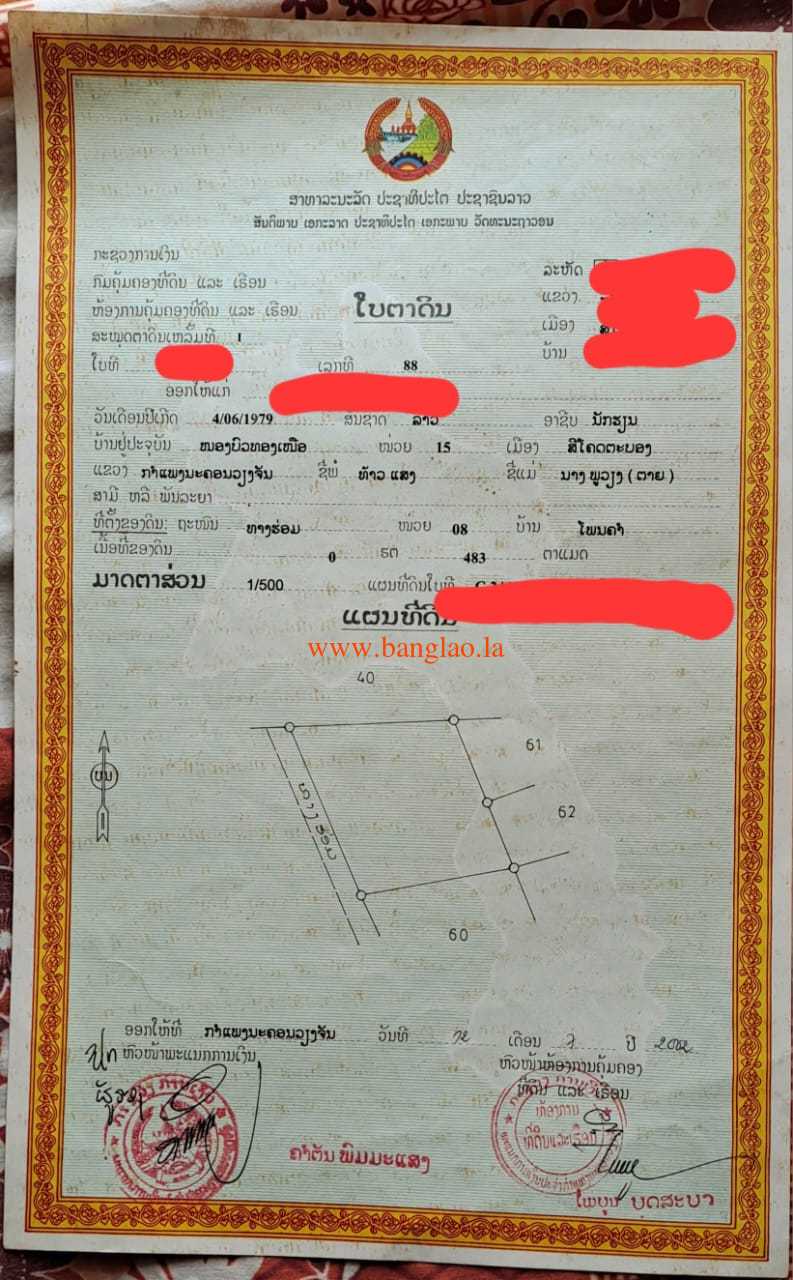 ສາທາລະນະລັດ ປະຊາທິປະໄຕ ປະຊາຊົນລາວ
ສັນຕິພາບ ເອກະລາດ ປະຊາທິປະໄຕ ເອກະພາບ ວັດທະນະຖາວອນ
ກະຊວງການເງິນ
ກົມຄຸ້ມຄອງທີ່ດິນ ແລະ ເຮືອນ
ຫ້ອງການຄຸ້ມຄອງທີ່ດິນ ແລະ ເຮືອນ
ລະຫັດ
ແຂວງ
ໃບຕາດິນ
ສະໝຸດຕາດິນເຫລັ້ມທີ 1
ເມືອງ
ບ້ານ
ໃບທີ ເລກທີ 88
ອອກໃຫ້ແກ່
ວັນເດືອນປີເກີດ 4/06/1979 ສັນຊາດ ລາວ ອາຊີບ ນັກຮຽນ
ບ້ານຢູ່ປະຈຸບັນ ໜອງບົວທອງເໜືອ ໜ່ວຍ 15 ເມືອງ ສີໂຄດຕະບອງ
ແຂວງ ກຳແພງນະຄອນວຽງຈັນ ຊື່ພໍ່ ທ້າວ ແສງ ຊື່ແມ່ ນາງ ພູວຽງ ( ຕາຍ )
ສາມີ ຫລື ພັນລະຍາ
ທີ່ຕັ້ງຂອງດິນ: ຖະໜົນ ທາງຮ່ອມ ໜ່ວຍ 08 ບ້ານ ໂພນຄຳ
ເນື້ອທີ່ຂອງດິນ 0 ຮຕ 483 ຕາແມດ
ມາດຕາສ່ວນ 1/500 ແຜນທີ່ດິນໃບທີ
ແຜນທີ່ດິນ
www.banglao.la
40
61
ບນ
62
ທາງຮ່ອມ
60
ອອກໃຫ້ທີ່ ກຳແພງນະຄອນວຽງຈັນ ວັນທີ 12 ເດືອນ 7 ປີ 2002
ຫົວໜ້າພະແນກການເງິນ
ຫົວໜ້າຫ້ອງການຄຸ້ມຄອງ
ທີ່ດິນ ແລະ ເຮືອນ
ຫ້ອງການ
ທີ່ດິນແລະເຮືອນ
ຄຳຕັນ ພົມມະແສງ
ໄພບຸນ ບຸດສະບາ